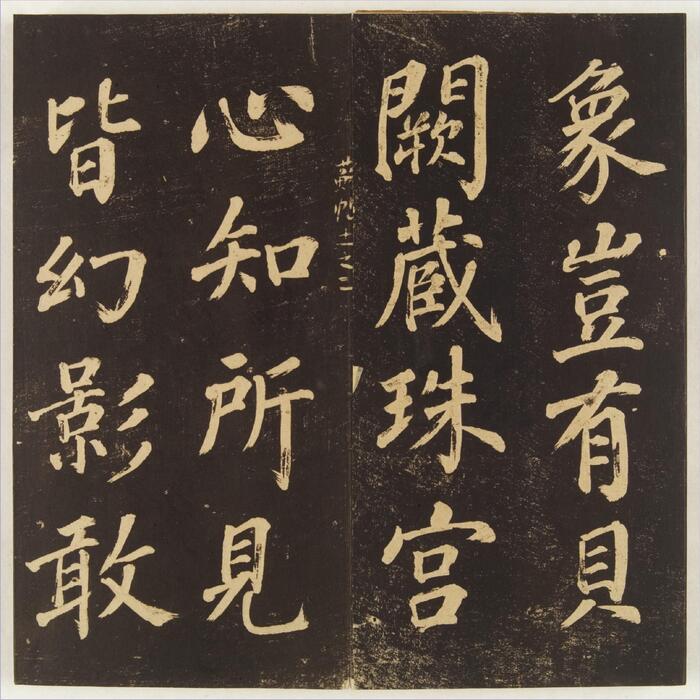 象豈有貝
闕藏珠宮
心知所見
皆幻影敢